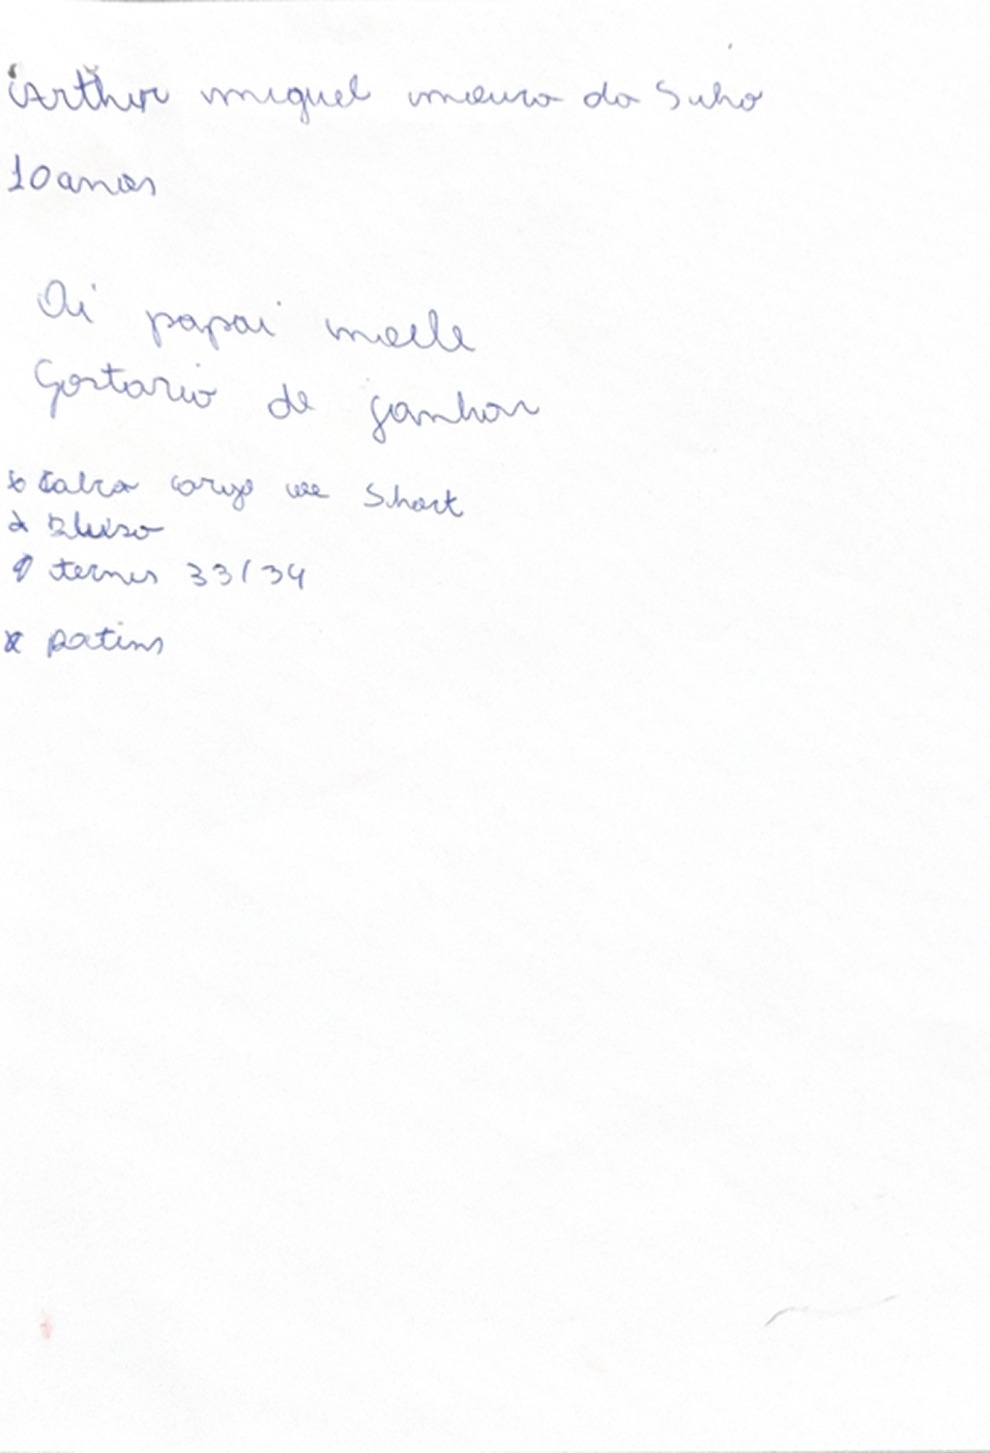 Arthur miguel moura da Silva
10 anos
Oi papai noele
Gostaria de ganhar
calca cargo ou Short
Bluza
ternis 33/34
x patins